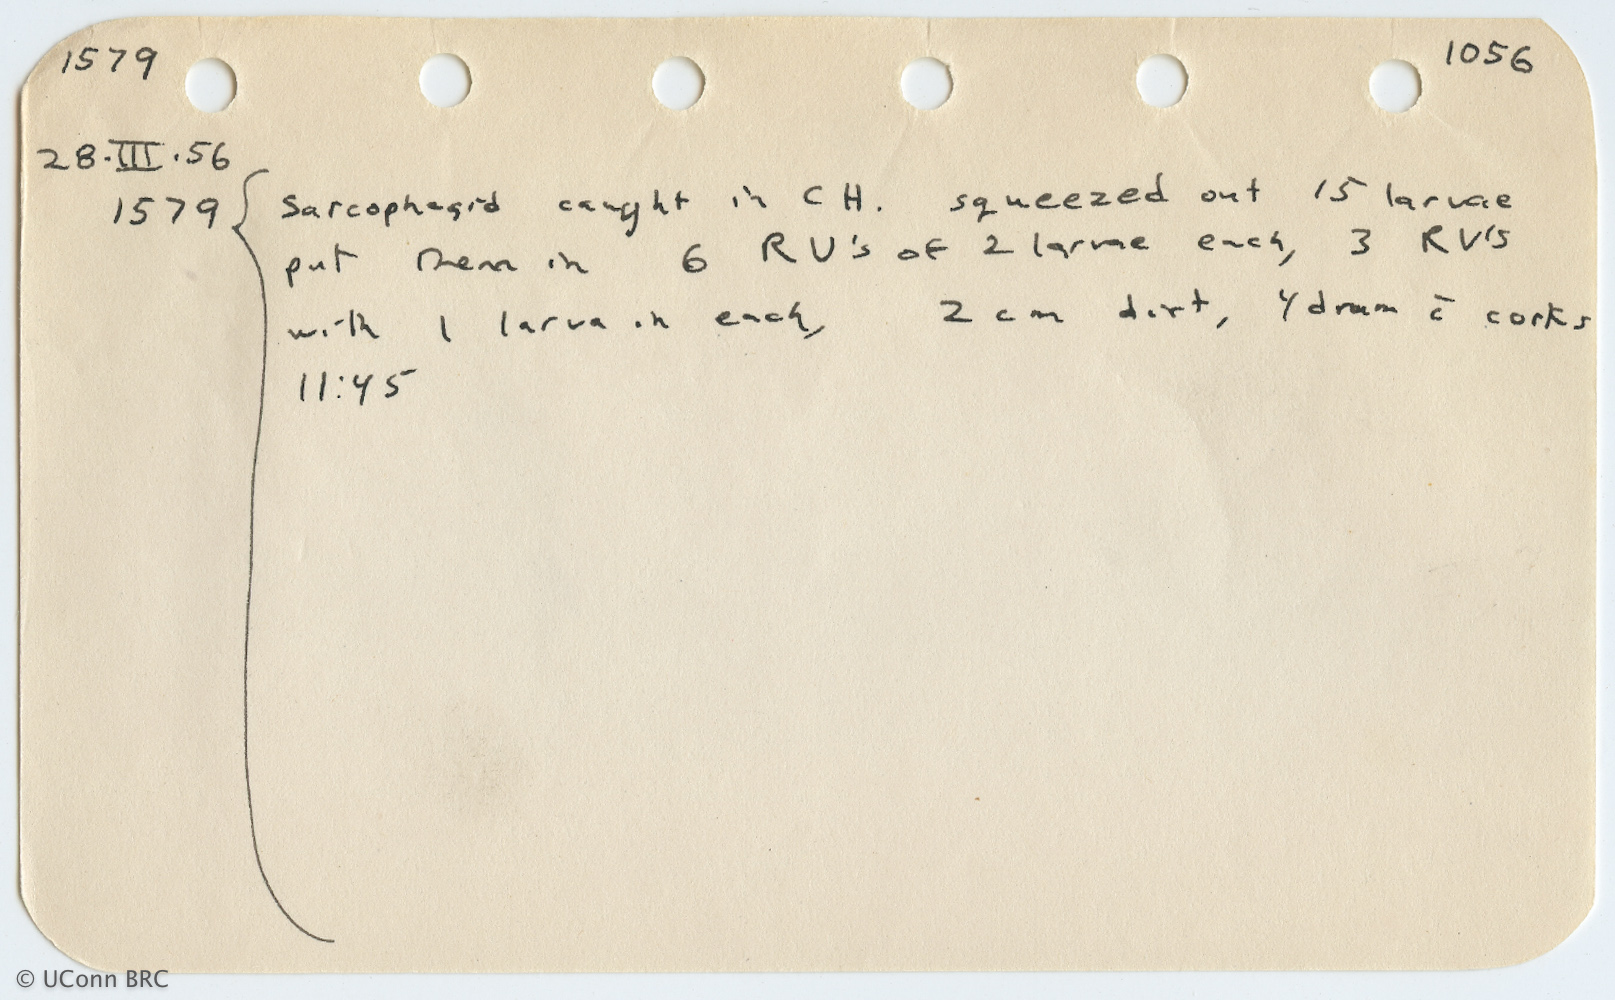 1579 1056
28.III.56
1579 { Sarcophagid caught in CH. squeezed out 15 larvae
put them in 6 RV's of 2 larvae each, 3 RV's
with 1 larva in each, 2 cm dirt, 4 dram c̄ corks
11:45
© UConn BRC